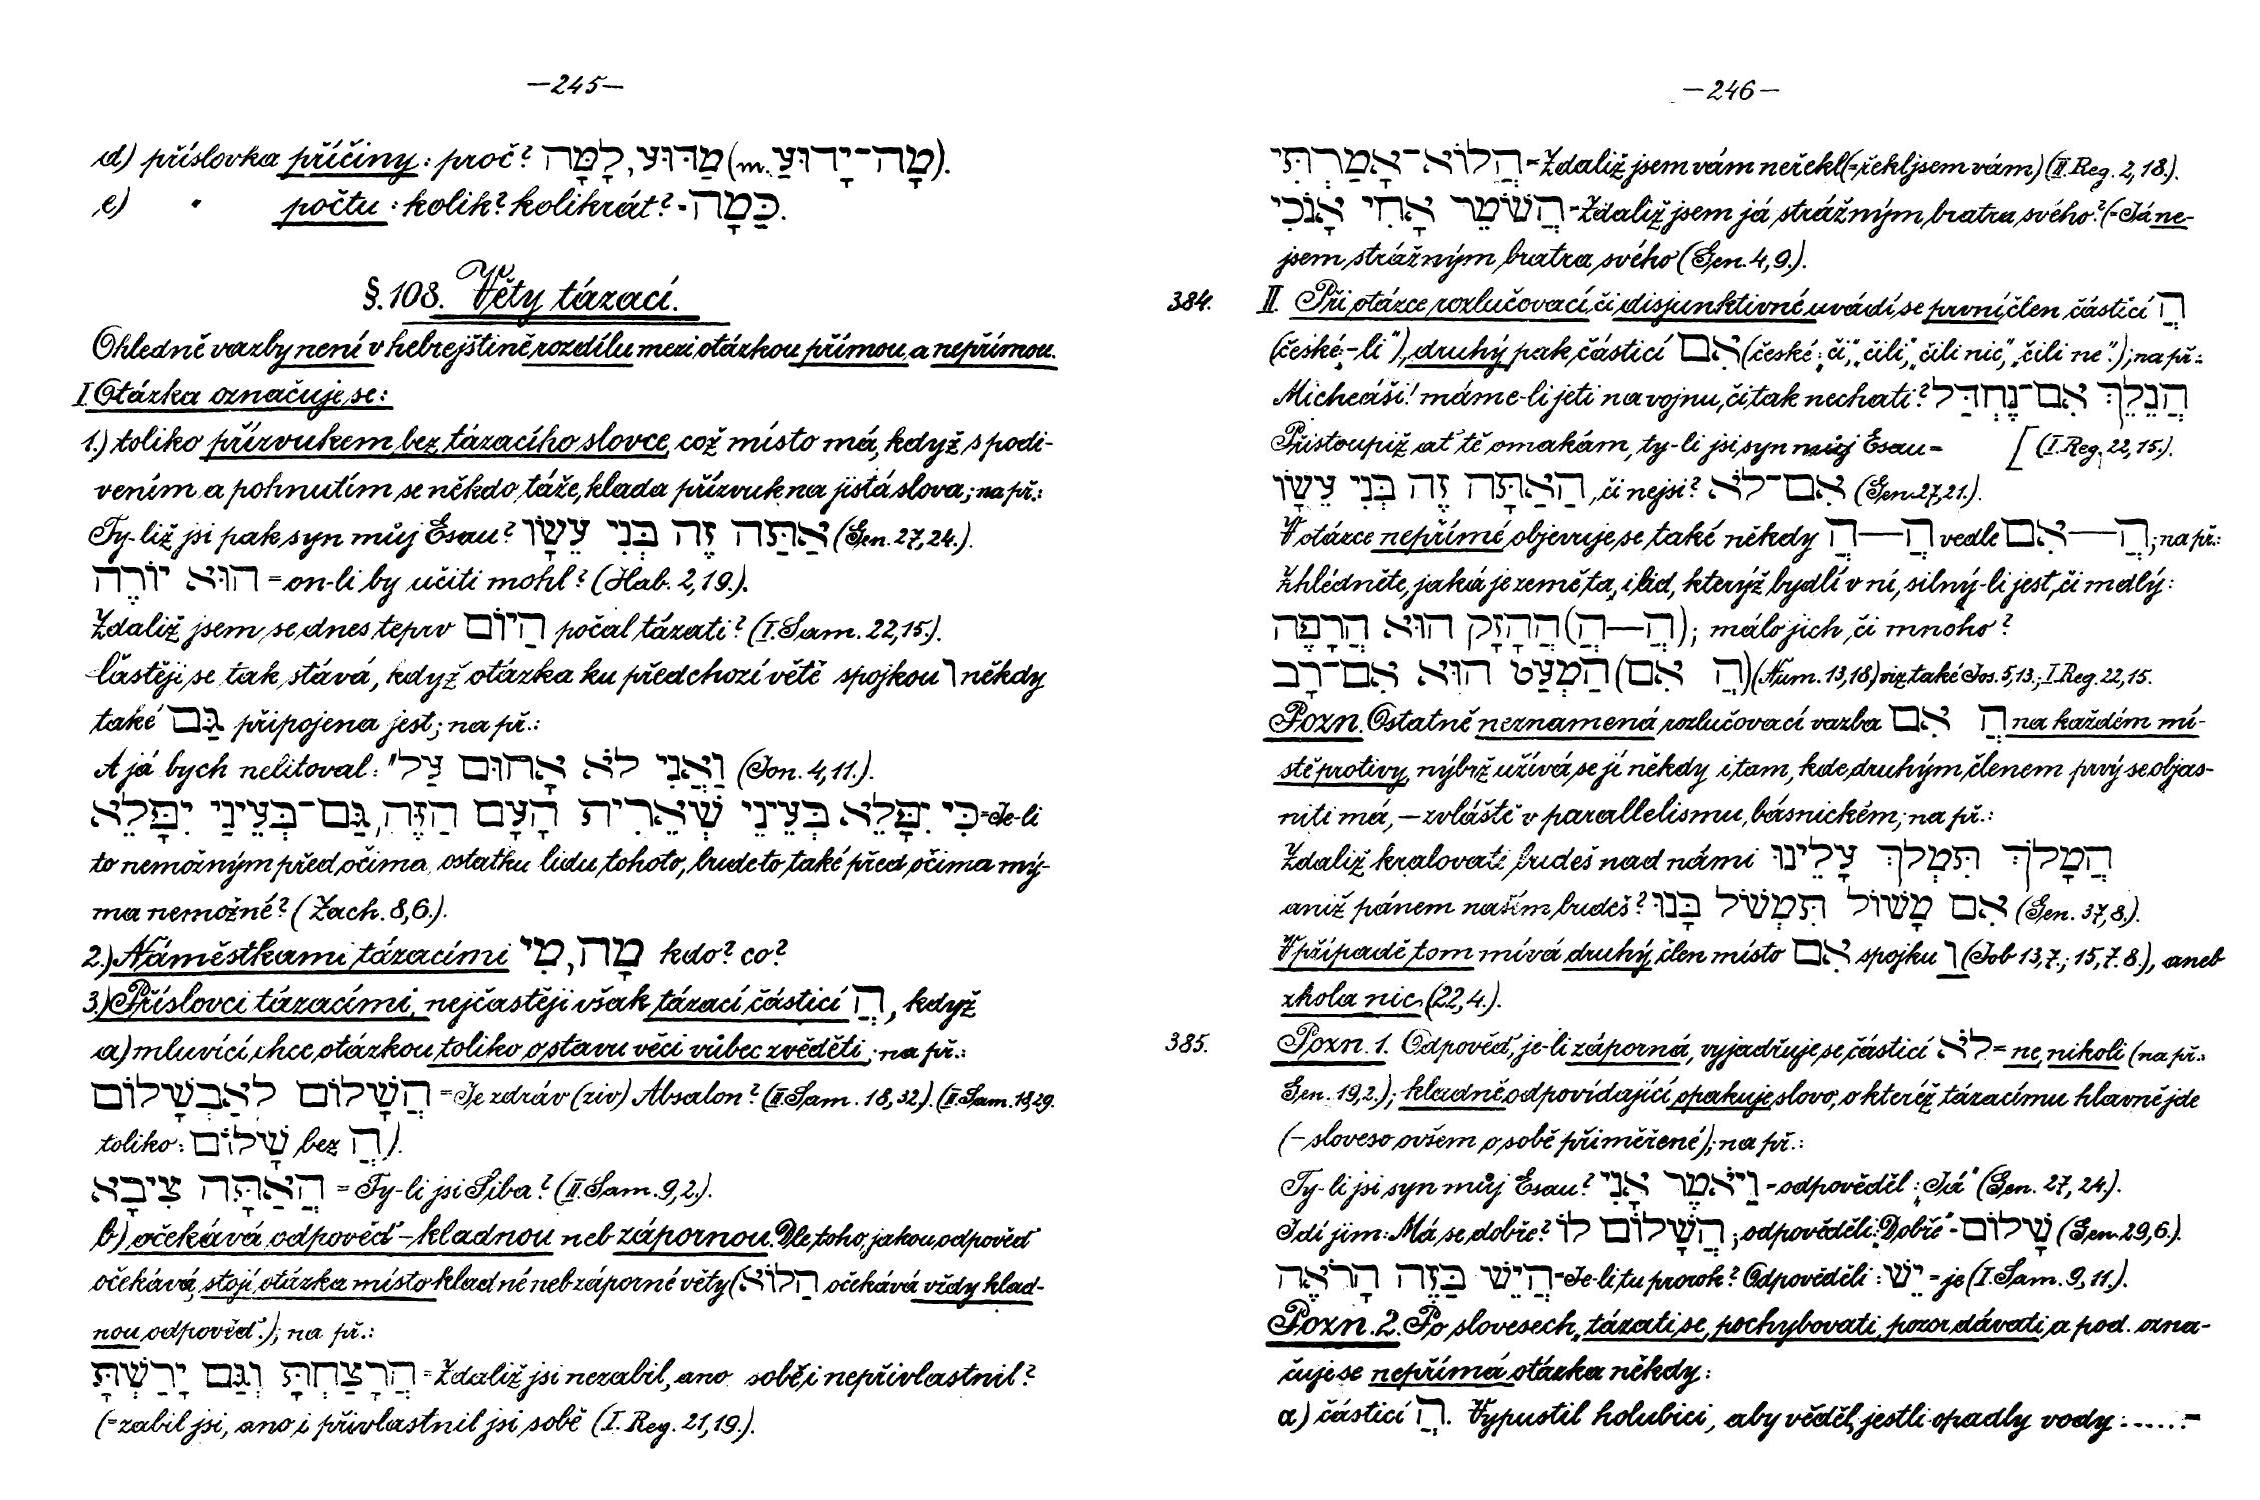 —245—
d) příslovka příčiny: proč? לָמָּה, מַדּוּעַ (m. מָה־יָדוּעַ).
e) " počtu: kolik? kolikrát? - כַּמָּה.
§.108. Věty tázací.
Ohledně vazby není v hebrejštině rozdílu mezi otázkou přímou a nepřímou.
I. Otázka označuje se:
1.) toliko přízvukem bez tázacího slovce, což místo má, když s podi-
vením a pohnutím se někdo táže, klada přízvuk na jistá slova; na př.:
Ty-liž jsi pak syn můj Esau? אַתָּה זֶה בְּנִי עֵשָׂו (Gen. 27,24.).
הוּא יוֹרֶה = on-li by učiti mohl? (Hab. 2,19.).
Zdaliž jsem se dnes teprv הַיּוֹם počal tázati? (I. Sam. 22,15.).
Častěji se tak stává, když otázka ku předchozí větě spojkou ו někdy
také גַּם připojena jest; na př.:
A já bych nelitoval: וַאֲנִי לֹא אָחוּס עַל' (Jon. 4,11.).
כִּי יִפָּלֵא בְּעֵינֵי שְׁאֵרִית הָעָם הַזֶּה, גַּם־בְּעֵינַי יִפָּלֵא = Je-li
to nemožným před očima ostatku lidu tohoto, bude to také před očima mý-
ma nemožné? (Zach. 8,6.).
2.) Náměstkami tázacími מִי, מָה kdo? co?
3.) Příslovci tázacími, nejčastěji však tázací částicí הֲ, když
a) mluvící chce otázkou toliko o stavu věci vůbec zvěděti; na př.:
הֲשָׁלוֹם לְאַבְשָׁלוֹם = Je zdráv (živ) Absalon? (II. Sam. 18,32.). (II. Sam. 18,29.
toliko: שָׁלוֹם bez הֲ).
הַאַתָּה צִיבָא = Ty-li jsi Siba? (II Sam. 9,2.).
b) očekává odpověď – kladnou neb zápornou. Dle toho, jakou odpověď
očekává, stojí otázka místo kladné neb záporné věty (הֲלוֹא očekává vždy klad-
nou odpověď.); na př.:
הֲרָצַחְתָּ וְגַם יָרָשְׁתָּ = Zdaliž jsi nezabil, ano sobě i nepřivlastnil?
(= zabil jsi, ano i přivlastnil jsi sobě (I. Reg. 21,19.).
—246—
הֲלוֹא־אָמַרְתִּי = Zdaliž jsem vám neřekl (= řekl jsem vám) (II. Reg. 2,18.).
הֲשֹׁמֵר אָחִי אָנֹכִי = Zdaliž jsem já strážným bratra svého? (= Já ne-
jsem strážným bratra svého (Gen. 4,9.).
384. II. Při otázce rozlučovací či disjunktivné uvádí se první člen částicí הֲ
(české: „-li"), druhý pak částicí אִם (české: „či", „čili", „čili nic", „čili ne".); na př.:
Micheáši! máme-li jeti na vojnu, či tak nechati? הֲנֵלֵךְ אִם־נֶחְדָּל
Přistoupiž ať tě omakám, ty-li jsi syn můj Esau = [(I. Reg. 22,15.).
הַאַתָּה זֶה בְּנִי עֵשָׂו, či nejsi? אִם־לֹא (Gen. 27,21.).
V otázce nepřímé objevuje se také někdy הֲ—הֲ vedle הֲ—אִם; na př.:
Zhlédněte, jaká je země ta, i lid, kterýž bydlí v ní, silný-li jest, či mdlý:
הֶחָזָק הוּא הֲרָפֶה (הֲ—הֲ); málo jich, či mnoho?
הַמְעַט הוּא אִם־רָב (הֲ אִם) (Num. 13,18) viz také Jos. 5,13.; I Reg. 22,15.
Pozn. Ostatně neznamená rozlučovací vazba הֲ אִם na každém mí-
stě protivy, nýbrž užívá se jí někdy i tam, kde druhým členem prvý se objas-
niti má, — zvláště v parallelismu básnickém; na př.:
Zdaliž kralovati budeš nad námi הֲמָלֹךְ תִּמְלֹךְ עָלֵינוּ
aniž pánem naším budeš? אִם מָשׁוֹל תִּמְשֹׁל בָּנוּ (Gen. 37,8.).
V případě tom mívá druhý člen místo אִם spojku ו (Job 13,7.; 15,7.8.), aneb
zhola nic (22,4.).
385. Pozn. 1. Odpověď, je-li záporná, vyjadřuje se částicí לֹא = ne, nikoli (na př.:
Gen. 19,2.); kladně odpovídající opakuje slovo, o kteréž tázacímu hlavně jde
(– sloveso ovšem o sobě přiměřené); na př.:
Ty-li jsi syn můj Esau? וַיֹּאמֶר אָנִי = odpověděl: „Já" (Gen. 27,24.).
I dí jim: Má se dobře? הֲשָׁלוֹם לוֹ; odpověděli: „Dobře" = שָׁלוֹם (Gen. 29,6.).
הֲיֵשׁ בָּזֶה הָרֹאֶה = Je-li tu prorok? Odpověděli: יֵשׁ = je (I. Sam. 9,11.).
Pozn. 2. Po slovesech, tázati se, pochybovati, pozor dávati a pod. ozna-
čuje se nepřímá otázka někdy:
a) částicí הֲ. Vypustil holubici, aby věděl, jestli opadly vody ...... =